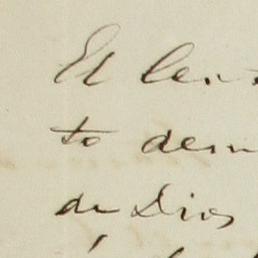 El len
to dem
de Dios